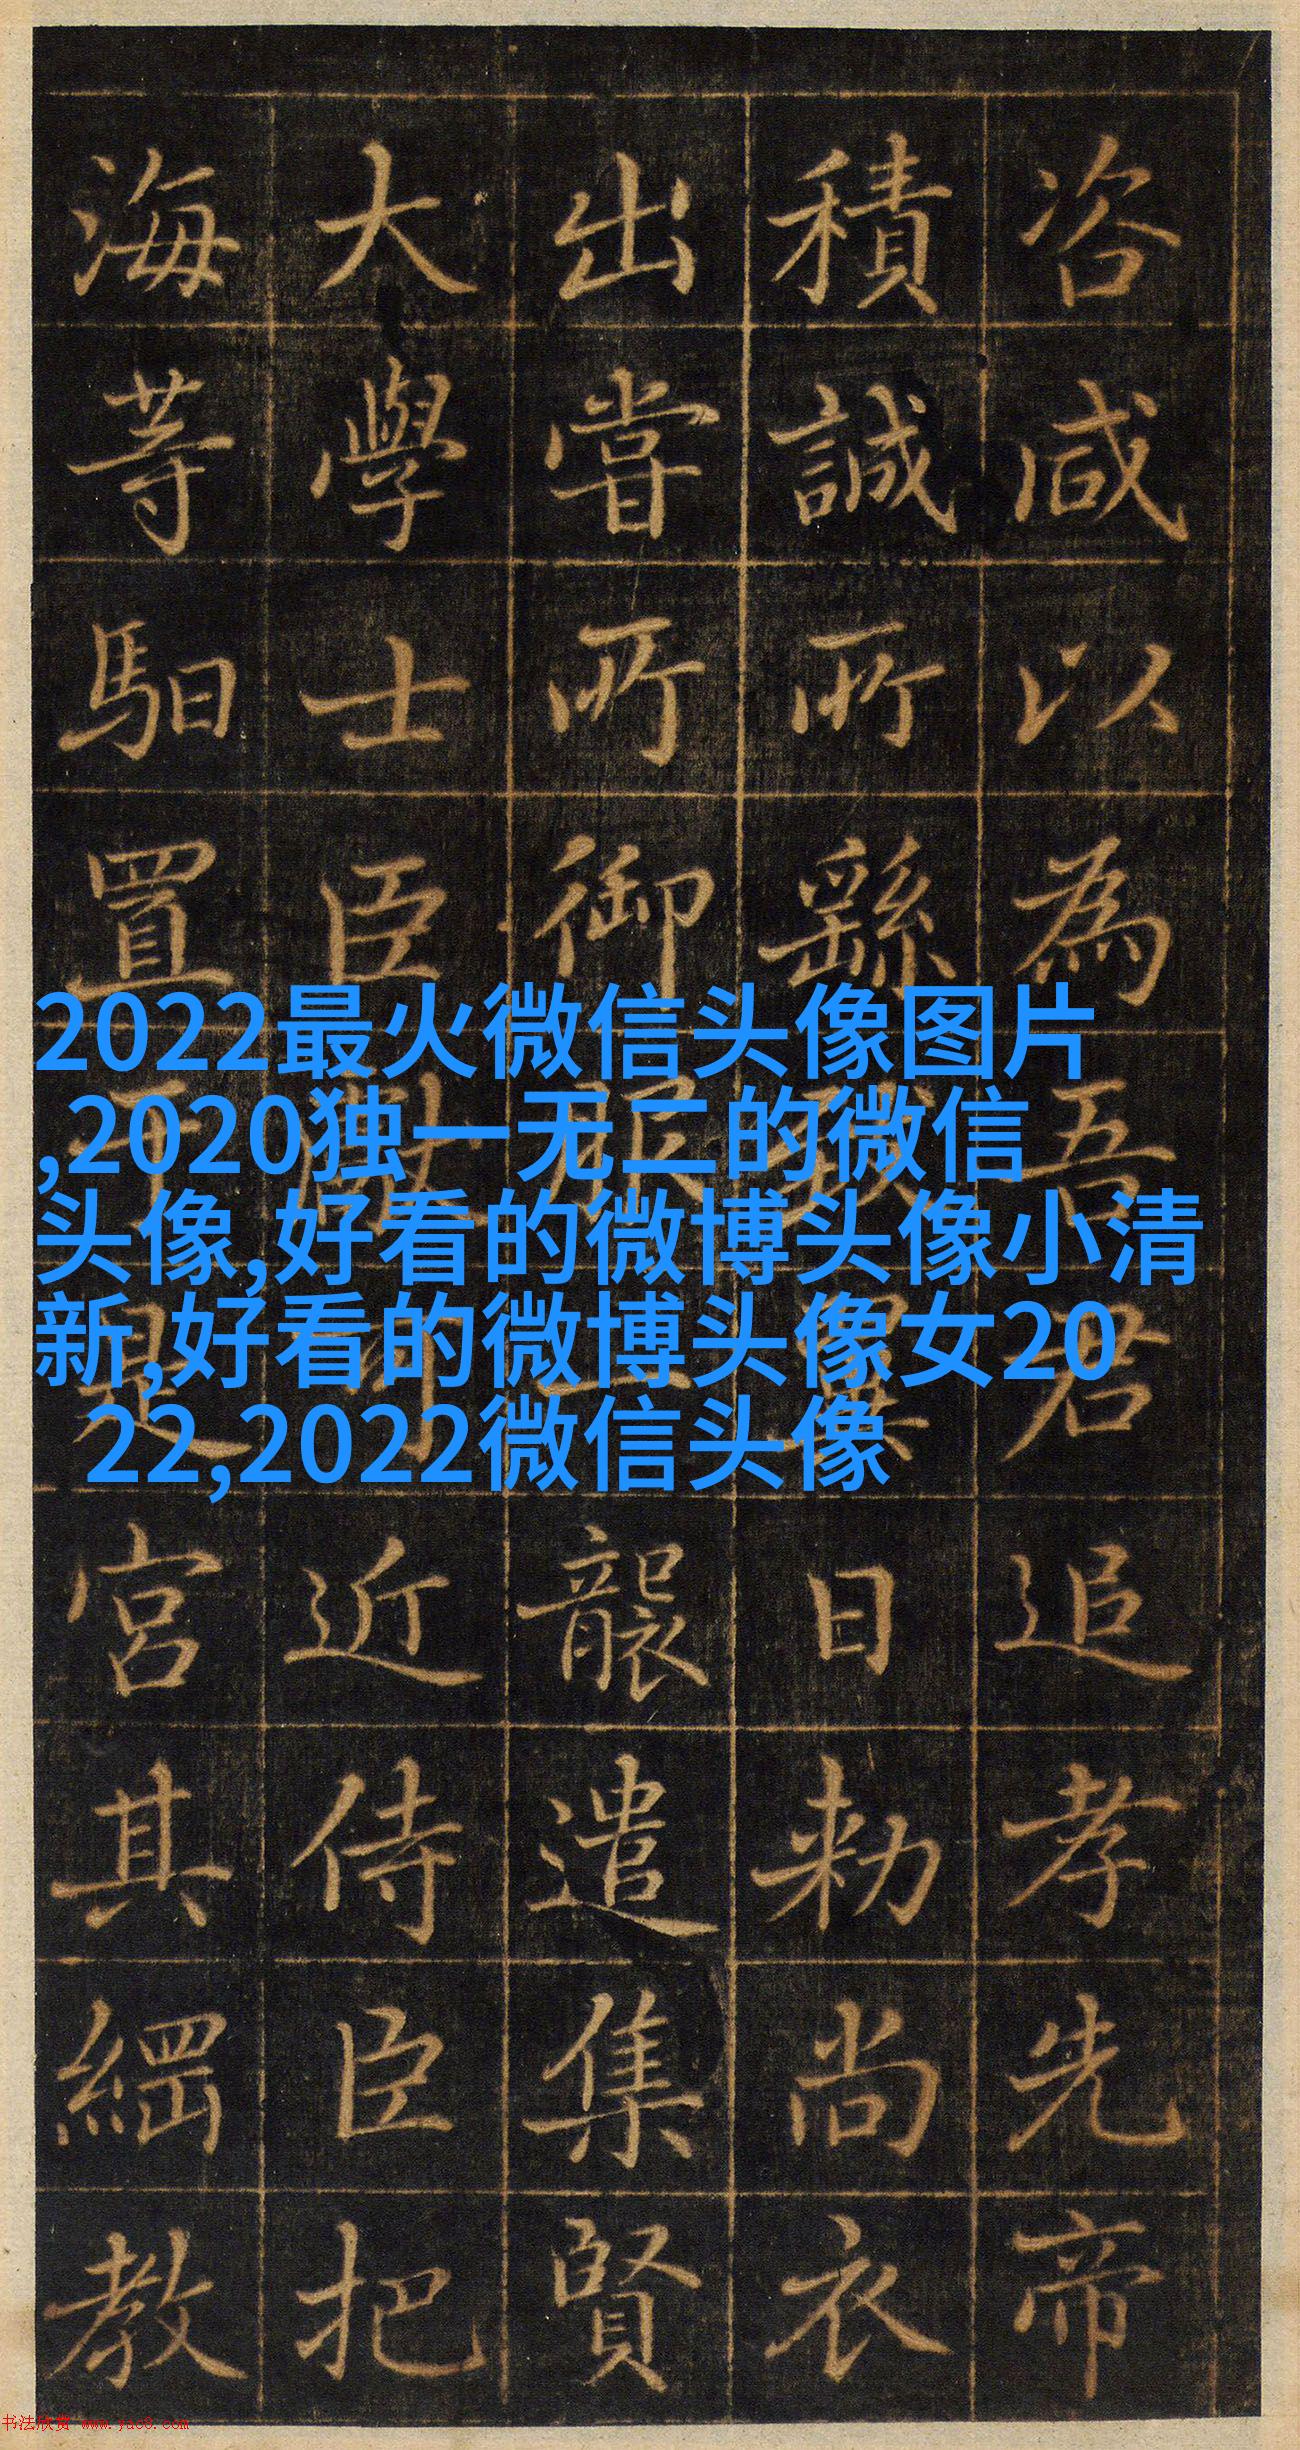 咨咸以為吾君追孝先帝
積誠所繇致異日勅尚衣
出嘗所御服一襲遣集賢
大學士臣近侍臣把
海等馹置于是宮其綱教
2022最火微信头像图片
,2020独一无二的微信
头像,好看的微博头像小清
新,好看的微博头像女20
22,2022微信头像
书法欣赏 www.yac8.com